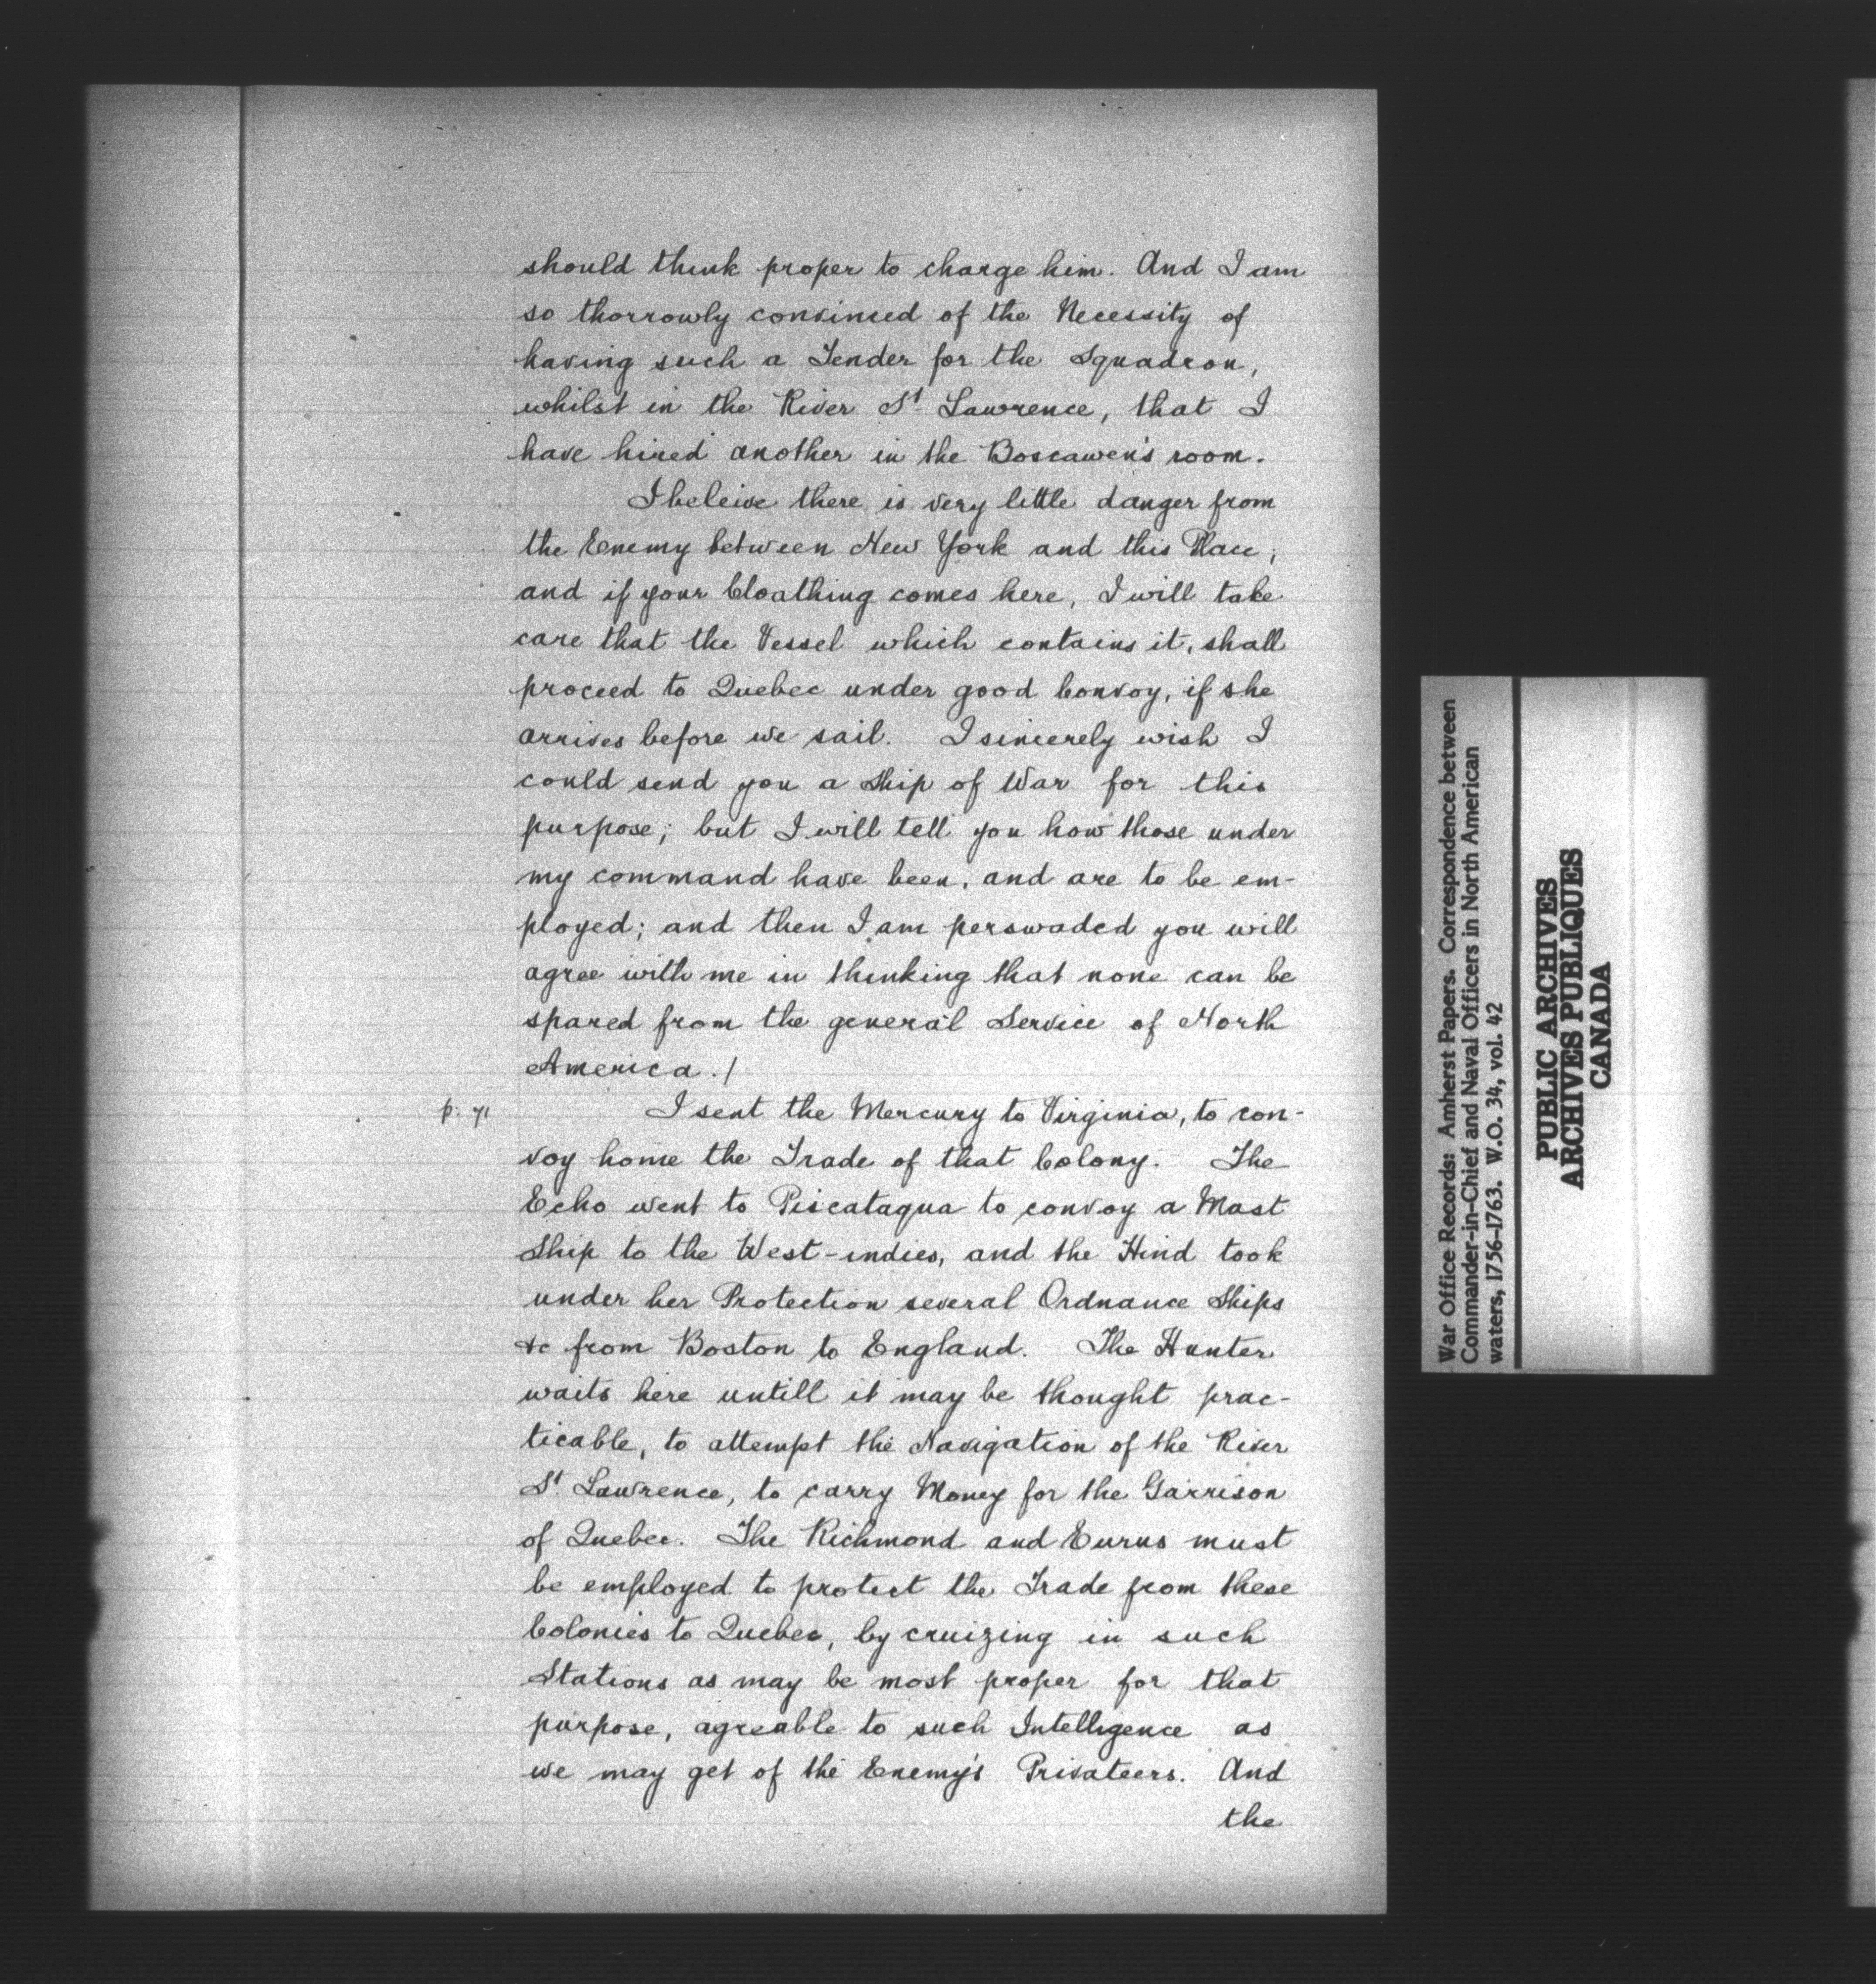 should think proper to charge him. And I am
so thorrowly convinced of the Necessity of
having such a Tender for the Squadron,
whilst in the River St. Lawrence, that I
have hired another in the Boscawen's room.
I beleive there is very little danger from
the Enemy between New York and this Place;
and if your Cloathing comes here, I will take
care that the Vessel which contains it, shall
proceed to Quebec under good Convoy, if she
arrives before we sail. I sincerely wish I
could send you a Ship of War for this
purpose; but I will tell you how those under
my command have been, and are to be em-
ployed; and then I am perswaded you will
agree with me in thinking that none can be
spared from the general Service of North
America./
p. 71
I sent the Mercury to Virginia, to con-
voy home the Trade of that Colony. The
Echo went to Piscataqua to convoy a Mast
Ship to the West-indies, and the Hind took
under her Protection several Ordnance Ships
&c from Boston to England. The Hunter
waits here untill it may be thought prac-
ticable, to attempt the Navigation of the River
St. Lawrence, to carry Money for the Garrison
of Quebec. The Richmond and Eurus must
be employed to protect the Trade from these
Colonies to Quebec, by cruizing in such
Stations as may be most proper for that
purpose, agreable to such Intelligence as
we may get of the Enemy's Privateers. And
the
War Office Records: Amherst Papers. Correspondence between
Commander-in-Chief and Naval Officers in North American
waters, 1756-1763. W.O. 34, vol. 42
PUBLIC ARCHIVES
ARCHIVES PUBLIQUES
CANADA